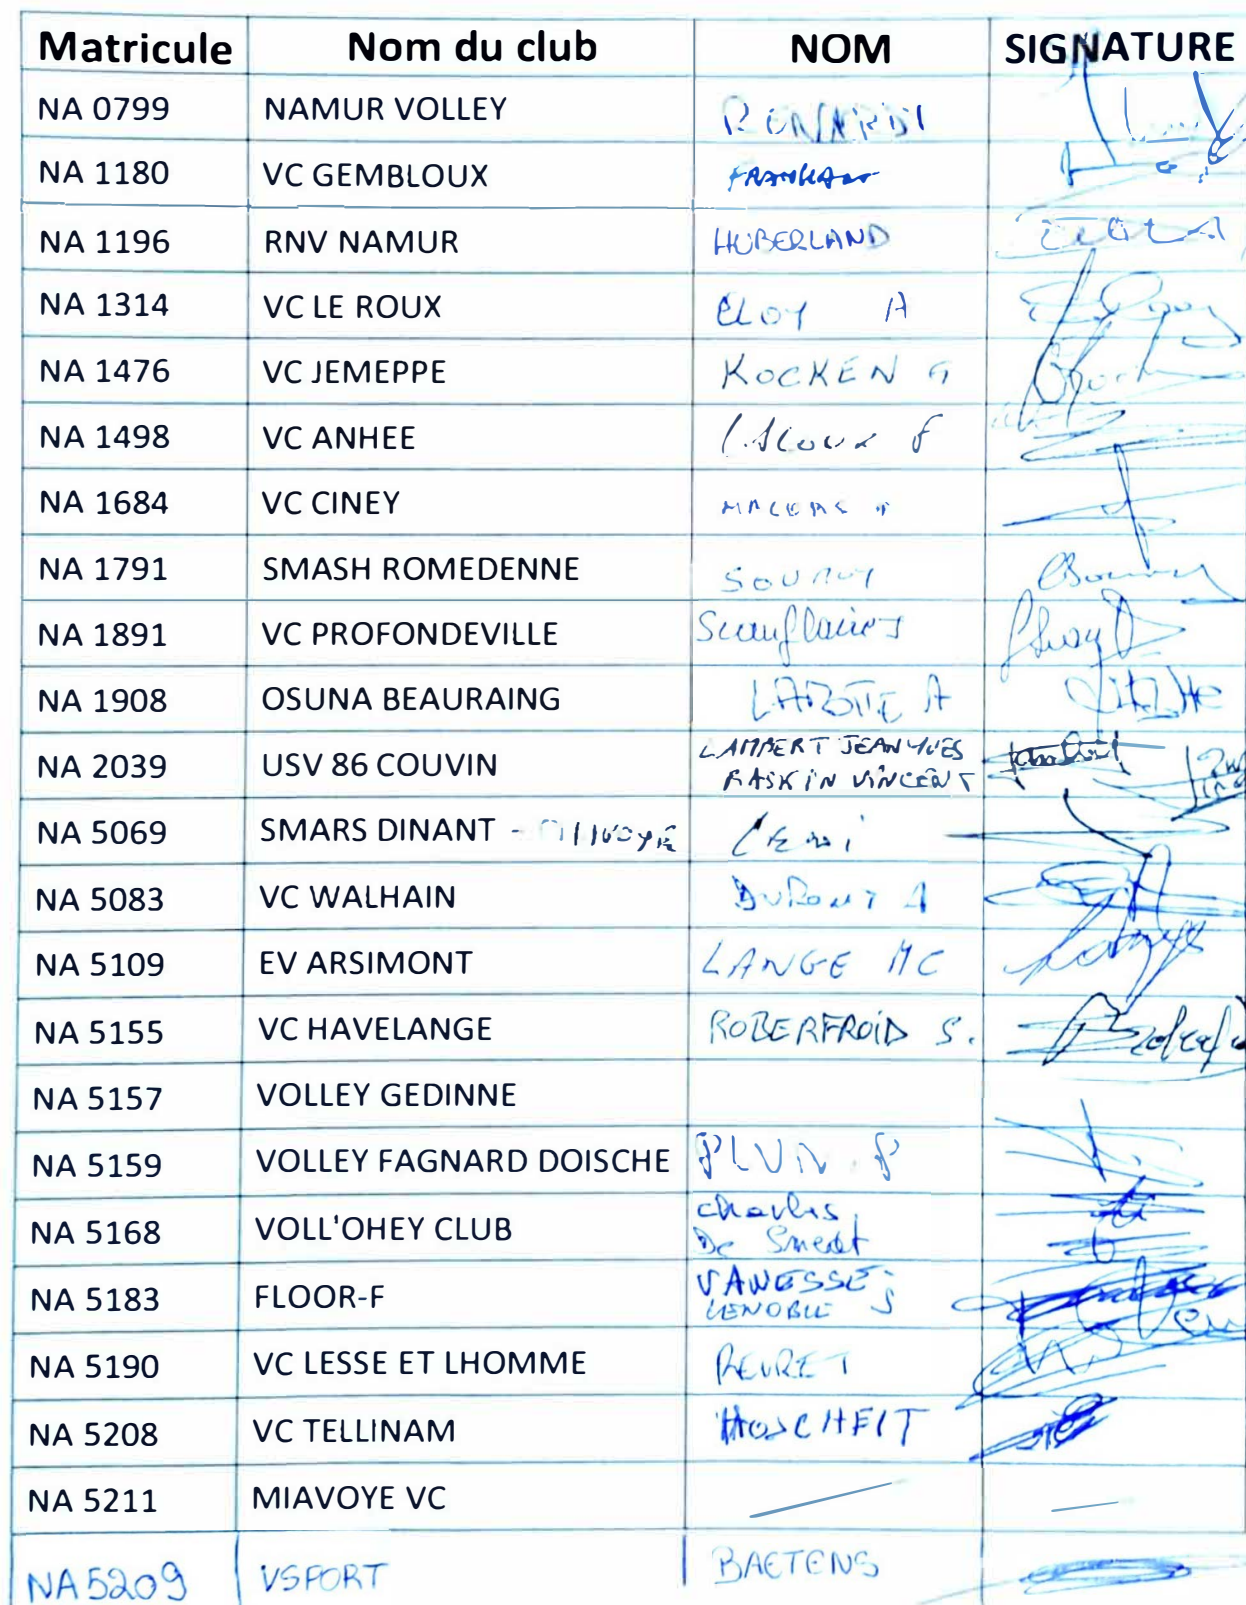 Matricule Nom du club NOM SIGNATURE
NA 0799 NAMUR VOLLEY
NA 1180 VC GEMBLOUX
NA 1196 RNV NAMUR HUBERLAND
NA 1314 VC LE ROUX ELOY A
NA 1476 VC JEMEPPE KOCKEN G
NA 1498 VC ANHEE
NA 1684 VC CINEY
NA 1791 SMASH ROMEDENNE
NA 1891 VC PROFONDEVILLE Scauflaire J
NA 1908 OSUNA BEAURAING A
NA 2039 USV 86 COUVIN LAMPERT JEAN YVES
RASKIN VINCENT
NA 5069 SMARS DINANT
NA 5083 VC WALHAIN DUPONT A
NA 5109 EV ARSIMONT LANGE MC
NA 5155 VC HAVELANGE ROBERFROID S.
NA 5157 VOLLEY GEDINNE
NA 5159 VOLLEY FAGNARD DOISCHE
NA 5168 VOLL'OHEY CLUB Charles
De Smedt
NA 5183 FLOOR-F VANESSE J
LENOBLE
NA 5190 VC LESSE ET LHOMME
NA 5208 VC TELLINAM HOSCHEIT
NA 5211 MIAVOYE VC
NA5209 VSPORT BAETENS